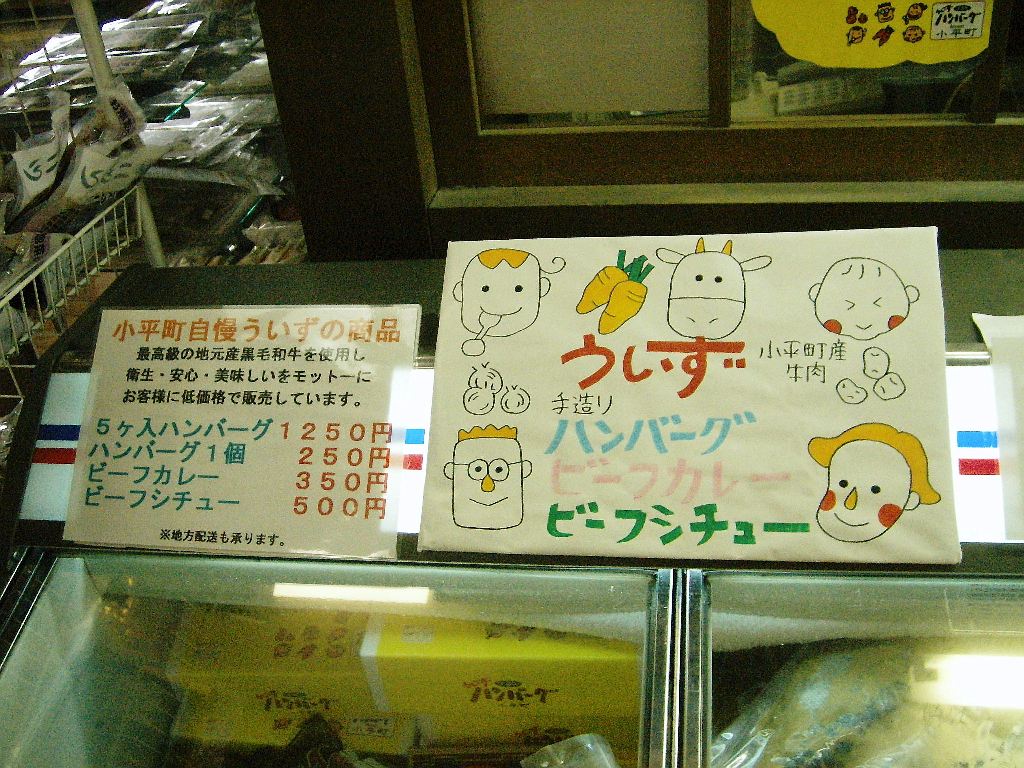 ハンバーグ
小平町
小平町自慢ういずの商品
最高級の地元産黒毛和牛を使用し
衛生・安心・美味しいをモットーに
お客様に低価格で販売しています。
5ヶ入ハンバーグ 1250円
ハンバーグ1個 250円
ビーフカレー 350円
ビーフシチュー 500円
※地方配送も承ります。
ういず
小平町産
牛肉
手造り
ハンバーグ
ビーフカレー
ビーフシチュー
ハンバーグ
ハンバーグ